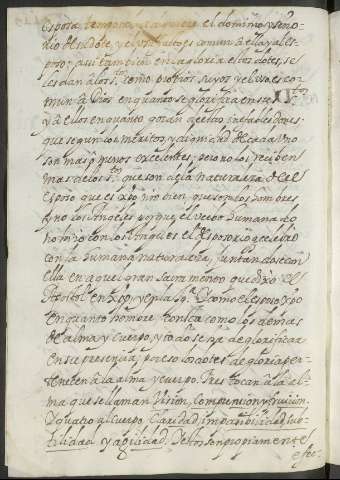 esposa, tampoco la quiere el dominio y seno-
rio del dote, y el uso del es comun a ella y al es-
poso; assi tambien en la gloria estos dotes, se
les dan a los s.tos como propios suyos y el uso es co-
mun a Dios en quanto se glorifica en sus s.tos
y a ellos en quanto gozan de estas inefables dones
que segun los meritos y dignidad de cada uno
son mas o menos excelentes; pero no los reciben
mas de los s.tos que son de la naturaleza del
esposo que es xpo nro bien, que son los hombres
y no los Angeles porque el Verbo humanado
no hizo con los Angeles el desposorio q celebro
con la humana naturaleza, juntandose con
ella en aquel gran sacramento que dixo el
Apostol en Xpo, y en la Ig.ª Y como el esposo Xpo
en quanto hombre consta como los demas
de alma y cuerpo, y todo se ha de glorificar
en su presencia, por eso los dotes de gloria per-
tenecen a la alma y cuerpo. Tres tocan a la al-
ma que se llaman Vision, Comprension y fruicion.
Y quatro al cuerpo, Claridad, impasibilidad, sub-
tilidad y agilidad. Y estos son propiamente
efec-